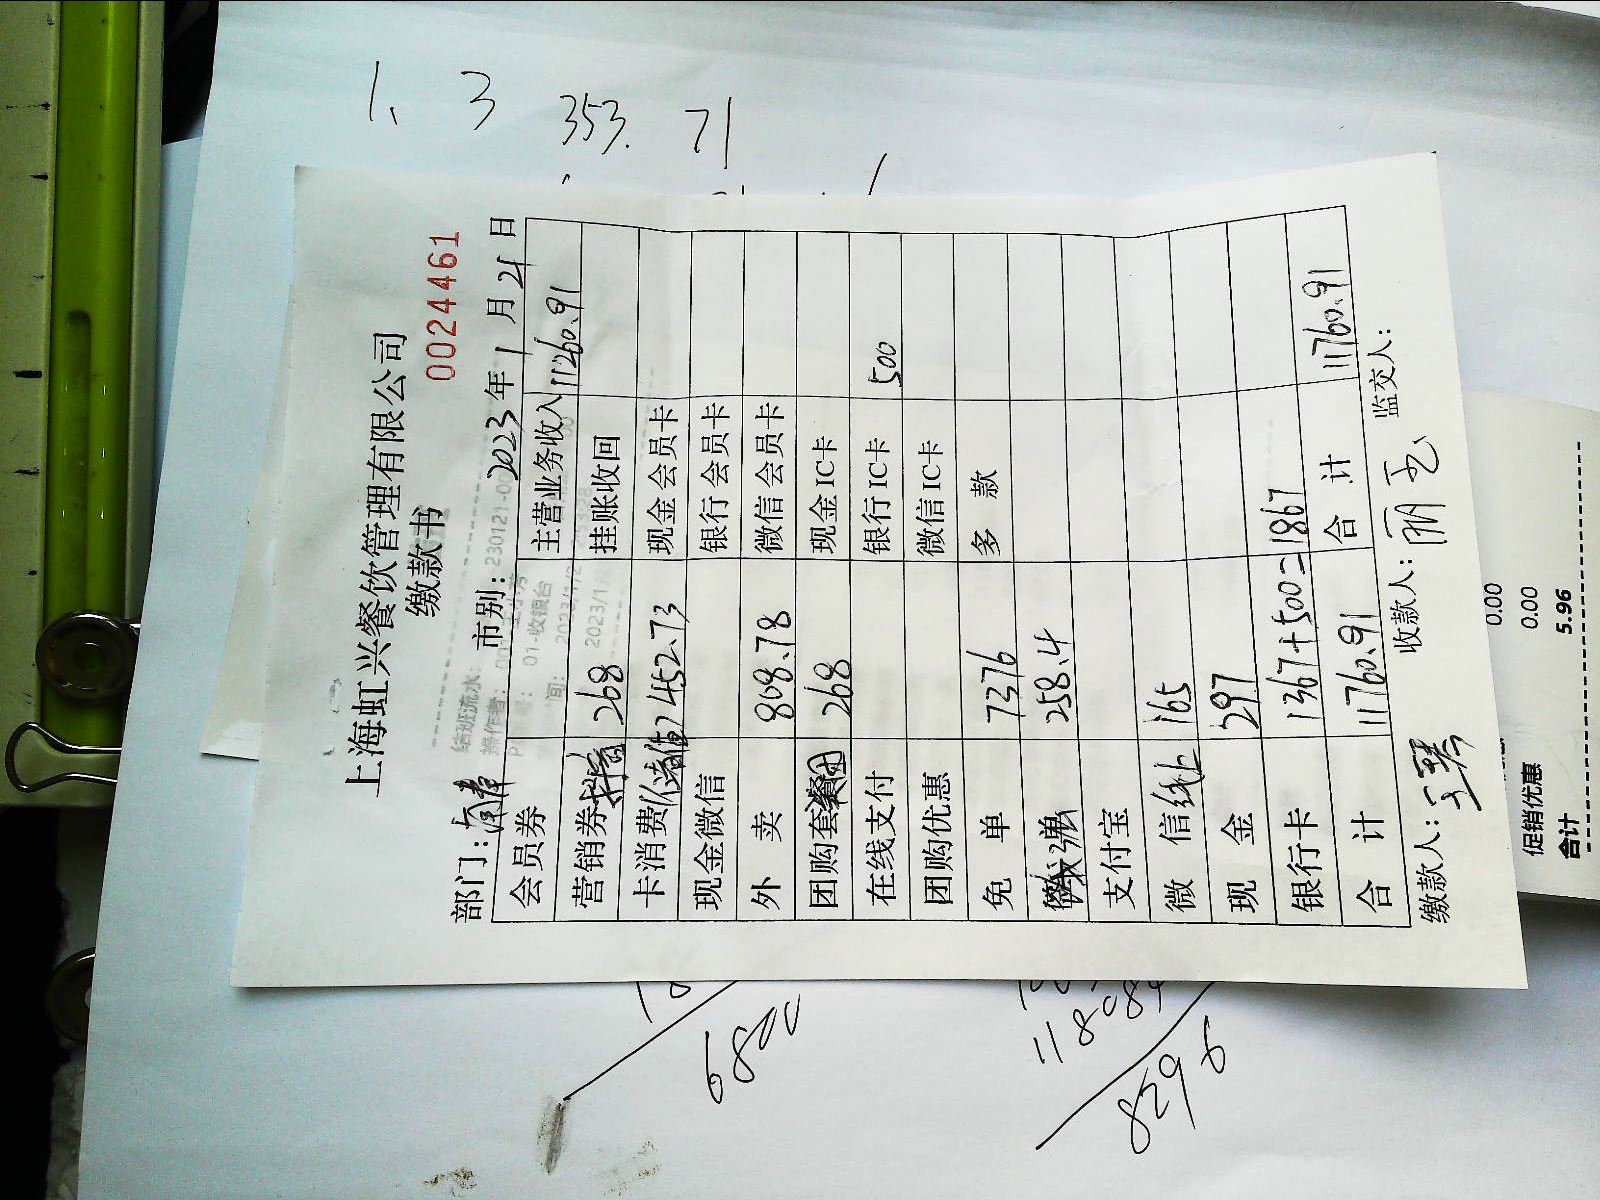 1、3 353.71
上海虹兴餐饮管理有限公司
缴款书
0024461
部门: 市别: 2023年1月21日
会员券 主营业务收入 11260.91
营销券 268 挂账收回
卡消费 2452.73 现金会员卡
现金微信 银行会员卡
外卖 808.78 微信会员卡
团购套餐 268 现金IC卡
在线支付 银行IC卡 500
团购优惠 微信IC卡
免单 7376 多款
258.4
支付宝
微信线上 165
现金 297
银行卡 1367+500=1867
合计 11760.91 合计 11760.91
缴款人: 收款人: 监交人:
结班流水: 230121-0
操作者:
01-收银台
2023/1/2
2023/1/
6800
8296
0.00
0.00
促销优惠 5.96
合计